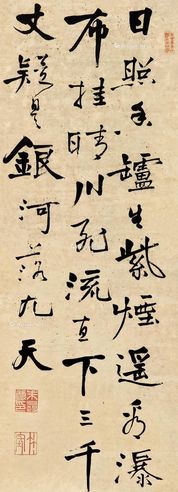 日照香爐生紫煙遙看瀑
布挂晴川飛流直下三千
丈疑是銀河落九天